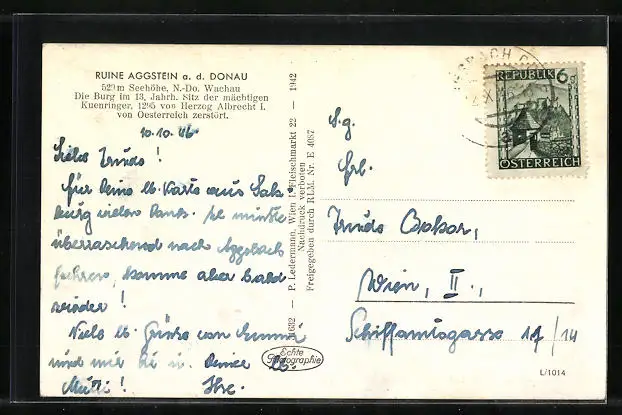 RUINE AGGSTEIN a. d. DONAU
520 m Seehöhe, N.-Do. Wachau
Die Burg im 13. Jahrh. Sitz der mächtigen
Kuenringer, 1295 von Herzog Albrecht I.
von Oesterreich zerstört.
10.10.46
Liebe Trude!
für Deine lb. Karte aus Salz-
burg vielen Dank. mußte
überraschend nach Aggsbach
fahren, komme aber bald
wieder!
Viele lb. Grüsse von Emmi
und mir Dir u. Deiner lb.
Mutti! Ihre.
P. Ledermann, Wien I., Fleischmarkt 22 — 1942
Nachdruck verboten
Freigegeben durch RLM. Nr. E 4087
Echte
Photographie
REPUBLIK 6g
ÖSTERREICH
S.g.
Frl.
Trude
Wien, II.,
Schiffamtsgasse 17/14
L/1014